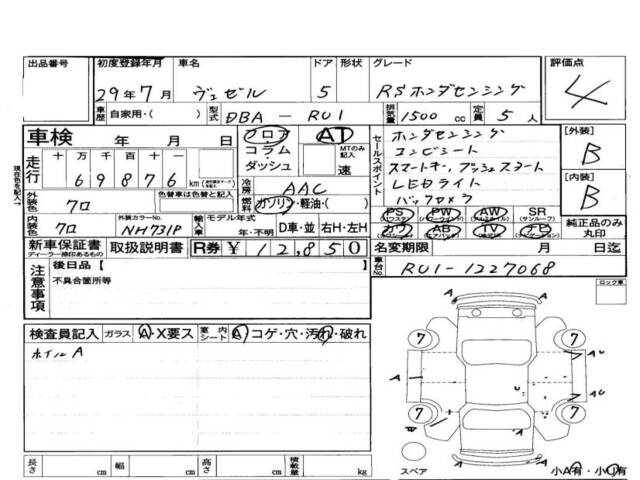 出品番号 初度登録年月 車名 ドア 形状 グレード 評価点
29年7月 ヴェゼル 5 RSホンダセンシング 4
車歴 自家用・( ) 型式 DBA - RU1 排気量 1500 cc 定員 5 人
車検 年 月 日 フロア AT セールスポイント ホンダセンシング [外装]
走行 十 万 千 百 十 一 コラム・ MTのみ記入 コンビシート B
69876 km ダッシュ 速 スマートキー,プッシュスタート
現在色を記入→ 冷房 AAC LEDライト [内装]
外装色 クロ 色替車は色替と記入 燃料 ガソリン・軽油・( ) バックカメラ B
内装色 クロ 外装カラーNo. NH731P 輸入車 モデル年式 年・不明 D車・並 右H・左H PS PW AW SR
カワ AB TV ナビ 純正品のみ丸印
新車保証書 取扱説明書 R券 ¥ 12,850 名変期限 月 日迄
ディーラー捺印あるもの
注意事項 後日品【 】 車台No. RU1-1227068
不具合箇所等 ロック車
検査員記入 ガラス A・X要ス 室内シート A コゲ・穴・汚れ・破れ
ホイルA
7 7
A U
A A U
7 7
A U
A
長さ cm 幅 cm 高さ cm 積載量 kg スペア 小A有・小U有